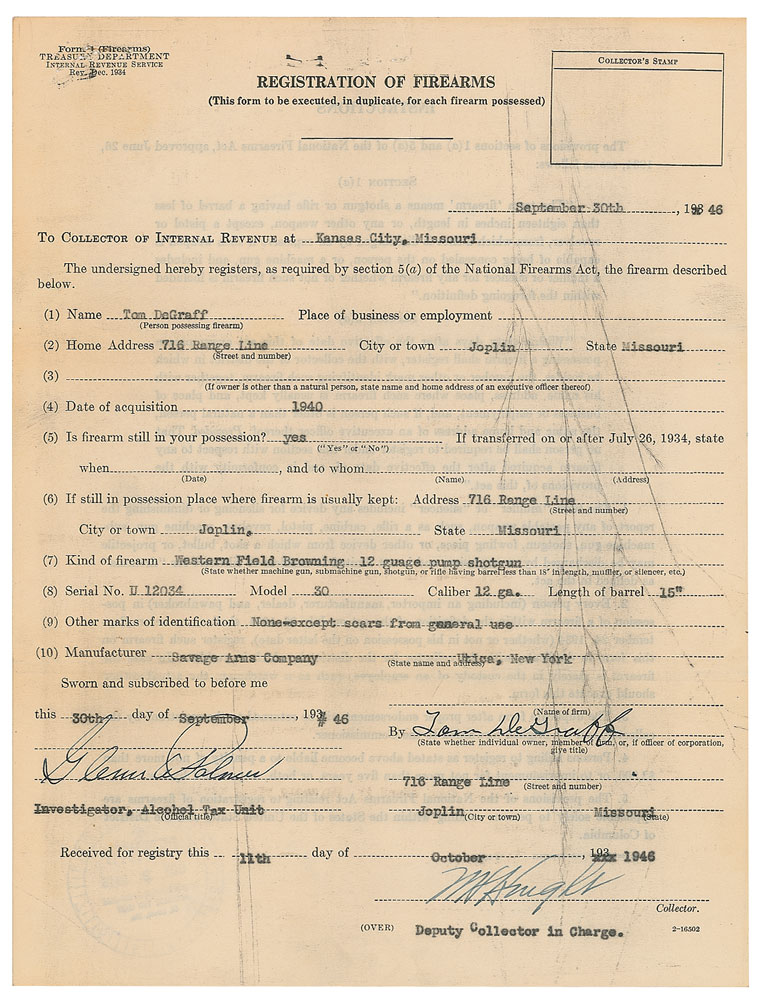 Form 1 (Firearms)
TREASURY DEPARTMENT
INTERNAL REVENUE SERVICE
Rev. Dec. 1934
COLLECTOR'S STAMP
REGISTRATION OF FIREARMS
(This form to be executed, in duplicate, for each firearm possessed)
September 30th, 193 46
TO COLLECTOR OF INTERNAL REVENUE at Kansas City, Missouri
The undersigned hereby registers, as required by section 5(a) of the National Firearms Act, the firearm described
below.
(1) Name Tom DeGraff Place of business or employment
(Person possessing firearm)
(2) Home Address 716 Range Line City or town Joplin State Missouri
(Street and number)
(3)
(If owner is other than a natural person, state name and home address of an executive officer thereof)
(4) Date of acquisition 1940
(5) Is firearm still in your possession? yes If transferred on or after July 26, 1934, state
("Yes" or "No")
when, and to whom
(Date) (Name) (Address)
(6) If still in possession place where firearm is usually kept: Address 716 Range Line
(Street and number)
City or town Joplin, State Missouri
(7) Kind of firearm Western Field Browning 12 guage pump shotgun
(State whether machine gun, submachine gun, shotgun, or rifle having barrel less than 18" in length, muffler, or silencer, etc.)
(8) Serial No. U 12034 Model 30 Caliber 12 ga. Length of barrel 15"
(9) Other marks of identification None-except scars from general use
(10) Manufacturer Savage Arms Company Utica, New York
(State name and address)
Sworn and subscribed to before me
this 30th day of September, 193 46
(Name of firm)
By Tom DeGraff
(State whether individual owner, member of firm, or, if officer of corporation,
give title)
Glenn C Palmer
716 Range Line
(Street and number)
Investigator, Alcohol Tax Unit
(Official title)
Joplin Missouri
(City or town) (State)
Received for registry this 11th day of October, 193xxx 1946
Collector.
(OVER) Deputy Collector in Charge. 2-16502